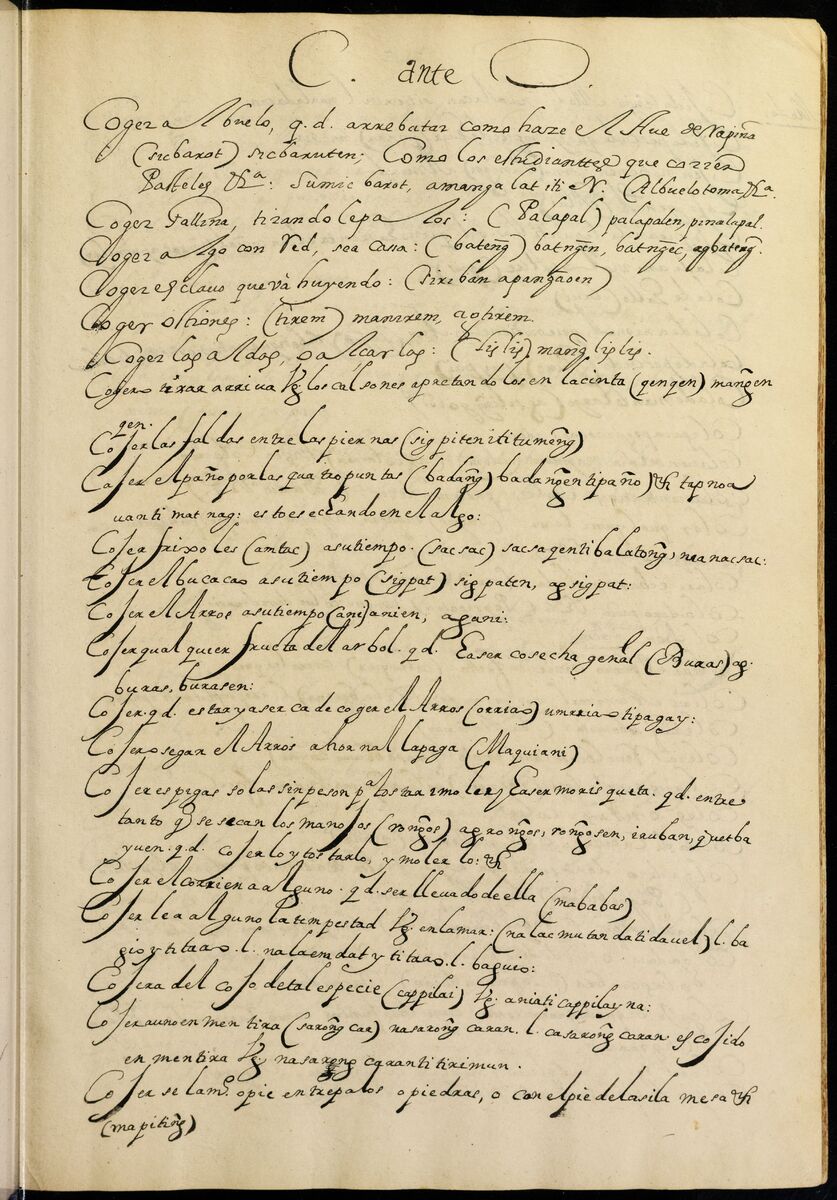 C. ante O.
Coger a Abuelo, q.d. arrebatar como haze el Aue de Rapiña
(sicbarot) sicbaruten; Como los estudianttes que corren
Pasteles &ª: Sumicbarot, amangalat iti N. (Al buelo toma, &ª.
Coger Gallina, tirandole palos: (Palapal) palapalen, pinalapal.
Coger algo con Red, sea casa: (bateng̃) batng̃en, batng̃ec, agbateng̃.
Coger esclavo que và huyendo: (tiriban apang̃aoen)
Coger ostiones: (tirem) manirem, agtirem.
Coger las aldas, o alcarlas: (lislis) mang̃lislis.
Coger o tirar arriua Vg. los calsones apretandolos en la cinta (qenqen) mang̃en
qen.
Cojer las faldas entre las piernas (sigpiten iti tumeng̃)
Cojer el paño por las quatro puntas (badang̃) badang̃en ti paño &c tapno a
uan ti matnag: esto es eccando en el algo:
Cojer frixoles (antac) a su tiempo. (sacsac) sacsaqen ti balatong̃, manacsac:
Cojer el bucacao a su tiempo (sigpat) sigpaten, agsigpat:
Cojer el Arros a su tiempo (ani) anien, agani:
Cojer qualquier fructa del arbol. q.d. Haser cosecha genal (Buras) ag.
buras, burasen:
Cojer. q.d. estar ya serca de coger el Arros (orriao) umrriao ti pagay:
Cojer o segar el Arros a hornal la paga (Maquiani)
Cojer espigas solas sin peson pª tostar i moler, Haser morisqueta. q.d. entre
tanto q̃ se secan los manojos (rong̃os) agrong̃os, rong̃osen, iruban, q̃uetba
yuen. q.d. cojerlo y tostarlo, y molerlo: &c
Cojer el corriente a alguno. q.d. ser llevado de ella (mababas)
Cojerle a alguno la tempestad Vg. en la mar: (nalacmutan dati dauel) l. ba
gio y titaao. l. nalaemdat y titaao. l. baguio:
Cojera del cojo de tal especie (cappilai) Vg. aniati cappilayna:
Cojer a uno en mentira (sarong̃car) nasarong̃caran. l. casarong̃caran es cojido
en mentira Vg. nasarong̃caran ti tirimun.
Cojerse la mº. o pie entre palos o piedras, o con el pie de la sila mesa &c
(mapiting̃)